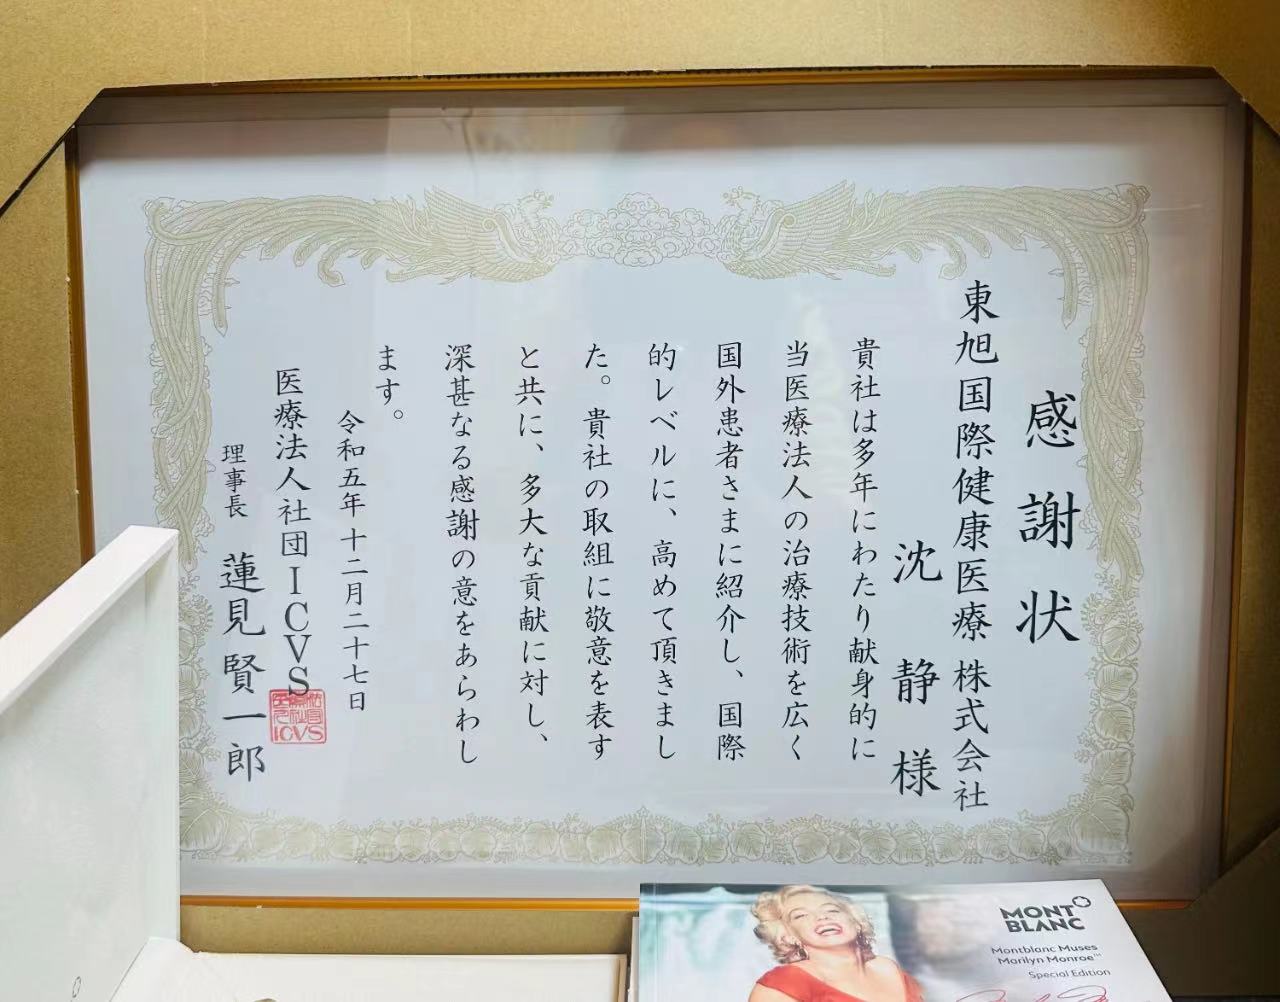 感謝状
東旭国際健康医療 株式会社
沈 静 様
貴社は多年にわたり献身的に
当医療法人の治療技術を広く
国外患者さまに紹介し、国際
的レベルに、高めて頂きまし
た。貴社の取組に敬意を表す
と共に、多大な貢献に対し、
深甚なる感謝の意をあらわし
ます。
令和五年 十二月二十七日
医療法人社団ICVS
理事長 蓮見賢一郎
ICVS
MONT
BLANC
Montblanc Muses
Marilyn Monroe™
Special Edition